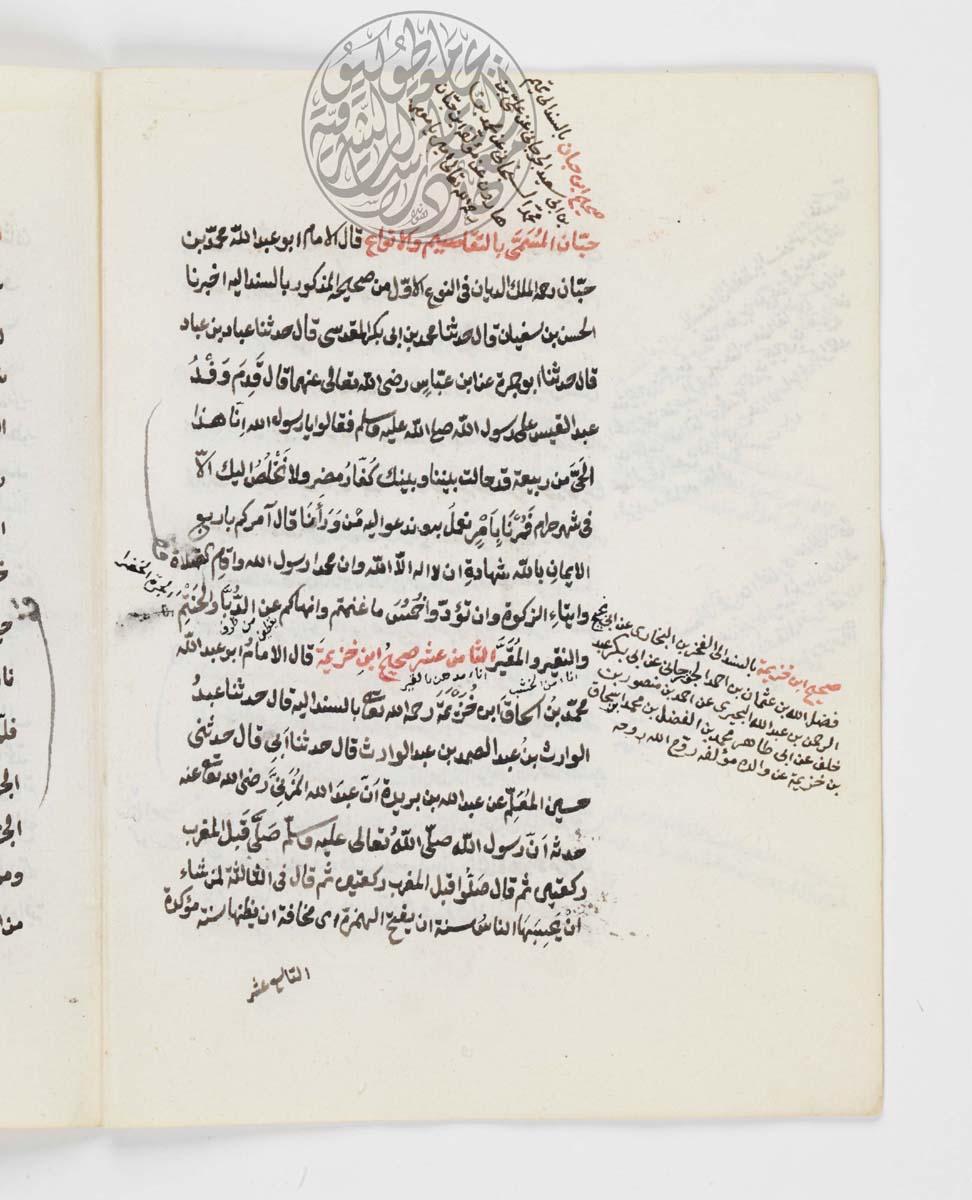 صحيح ابن حبان بالسند الى تميم
بن ابى سعيد الجرجانى عن على بن
محمد
هارون عن مؤلفه ابن حبان
حبّان المُسَمَّى بالتقاسيم والانواع قال الامام ابو عبد الله محمد بن
حبّان رحمه الملك الديان فى النوع الاوّل من صحيحه المذكور بالسند اليه اخبرنا
الحسن بن سفيان قال حدثنا محمد بن ابى بكر المقدسى قال حدثنا عباد بن عباد
قال حدثنا ابو جمرة عن ابن عبّاس رضى الله تعالى عنهما قال قَدِمَ وَفْدُ
عبد القيس على رسول الله صلى الله عليه وسلم فقالوا يا رسول الله اِنّا هذا
الحَىّ من ربيعة قد حالت بيننا وبينك كُفّارُ مضر ولا نَخْلُصُ اليك الاّ
فى شهر حرام فَمُرْنَا بِاَمْرٍ نعملُ به وندعو اليه مَن وَرَاَءنَا قال آمركم باربع
الايمان بالله شهادةِ ان لا اله الاّ الله وان محمدا رسول الله واقام الصلاة
وايتاءِ الزكوة وان تؤدّوا خُمُسَ ما غنمتم وانهاكم عن الدُّبَّاءِ والحَنْتَمِ
الجرة الخضراء
يقطين من ظروف
والنقير والمُقَيَّر الثامن عشر صحيحُ ابنِ خزيمةَ قال الامامُ ابن عبد الله
اناء من الخشب
اناء مدهن بالقير
محمّد بن اسحاق ابن خُزَيْمَةَ رحمه الله تعالى بالسند اليه قال حدثنا عبدُ
الوارث بنُ عبد الصمد بن عبد الوارث قال حدثنا اَبِى قال حدثنى
حسين المُعَلِّم عن عبد الله بن بريدة اَنّ عبدَ الله المُزَنِىَّ رضى الله تعالى عنه
حدثه اَنّ رسول الله صلّى اللهُ تعالى عليه وسلّم صَلَّى قبل المغرب
ركعتين ثم قال صَلُّوا قبل المغرب ركعتين ثم قال فى الثالثة لمن شاء
اَنْ يَحِسبَهَا الناسُ سنة ان بفتح الهمزة اى مخافة ان يظنها سنة مؤكدة
التاسع عشر
صحيح ابن خزيمة بالسند الى الفخر بن البخارى عن ابى نجيح
فضل الله بن عثمان بن احمد الجوزجانى عن ابى بكر عبد
الرحمن بن عبد الله البحيرى عن احمد بن منصور بن
خلف عن ابى طاهر محمد بن الفضل بن محمد بن اسحاق
بن خزيمة عن والده مؤلفه روّح الله روحه